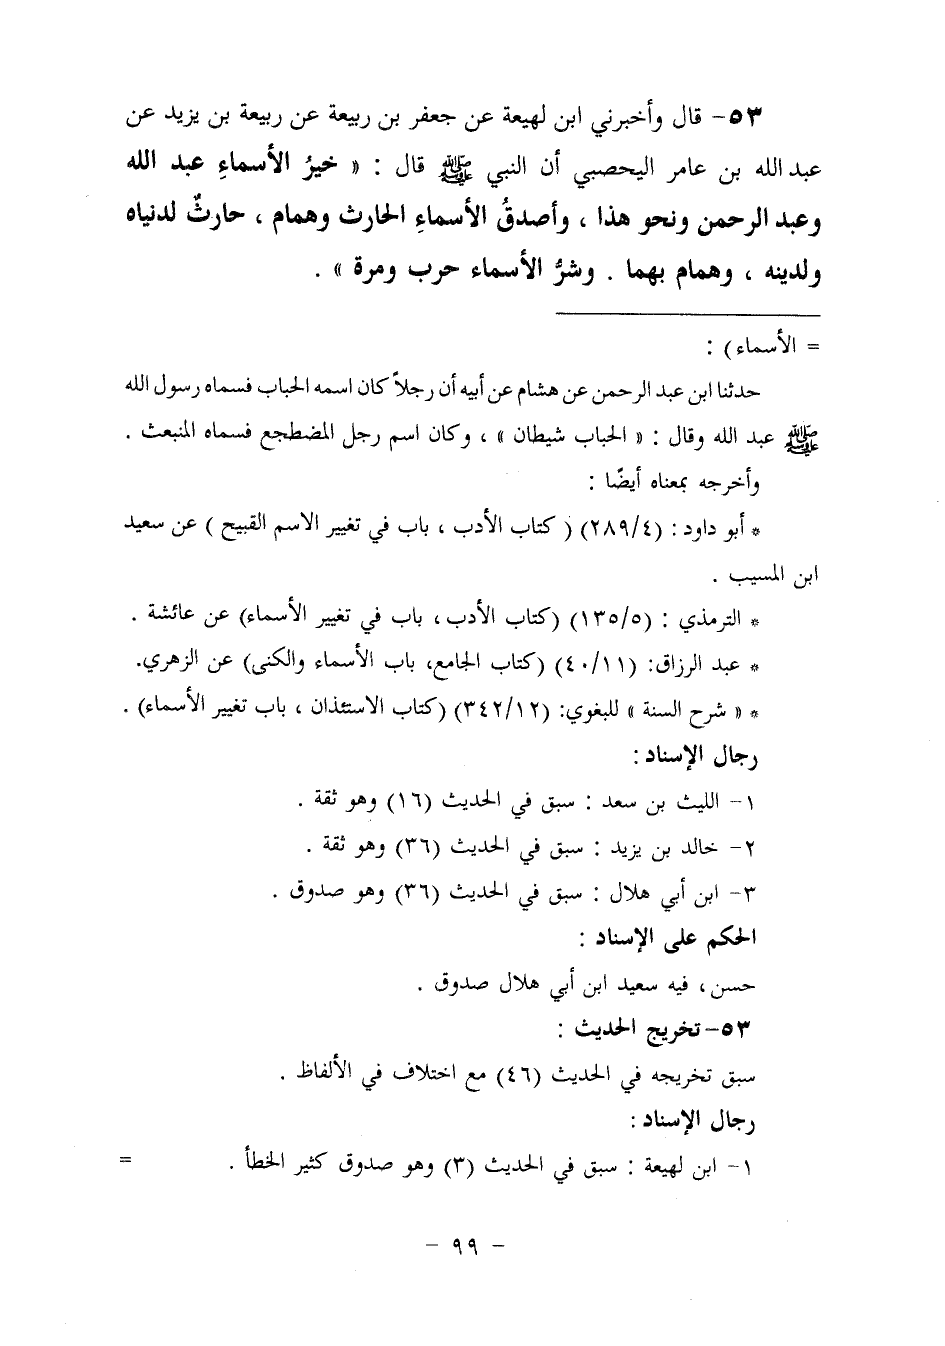 ٥٣- قال وأخبرني ابن لهيعة عن جعفر بن ربيعة عن ربيعة بن يزيد عن
عبد الله بن عامر اليحصبي أن النبي ﷺ قال : « خيرُ الأسماءِ عبد الله
وعبد الرحمن ونحو هذا ، وأصدقُ الأسماءِ الحارث وهمام ، حارثٌ لدنياه
ولدينه ، وهمام بهما . وشرُّ الأسماء حرب ومرة » .
= الأسماء) :
حدثنا ابن عبد الرحمن عن هشام عن أبيه أن رجلاً كان اسمه الحباب فسماه رسول الله
ﷺ عبد الله وقال : « الحباب شيطان » ، وكان اسم رجل المضطجع فسماه المنبعث .
وأخرجه بمعناه أيضًا :
* أبو داود : (٢٨٩/٤) ( كتاب الأدب ، باب في تغيير الاسم القبيح ) عن سعيد
ابن المسيب .
* الترمذي : (١٣٥/٥) (كتاب الأدب ، باب في تغيير الأسماء) عن عائشة .
* عبد الرزاق: (٤٠/١١) (كتاب الجامع، باب الأسماء والكنى) عن الزهري.
* « شرح السنة » للبغوي: (٣٤٢/١٢) (كتاب الاستئذان ، باب تغيير الأسماء) .
رجال الإسناد :
١- الليث بن سعد : سبق في الحديث (١٦) وهو ثقة .
٢- خالد بن يزيد : سبق في الحديث (٣٦) وهو ثقة .
٣- ابن أبي هلال : سبق في الحديث (٣٦) وهو صدوق .
الحكم على الإسناد :
حسن، فيه سعيد ابن أبي هلال صدوق .
٥٣- تخريج الحديث :
سبق تخريجه في الحديث (٤٦) مع اختلاف في الألفاظ .
رجال الإسناد :
١- ابن لهيعة : سبق في الحديث (٣) وهو صدوق كثير الخطأ . =
- ٩٩ -